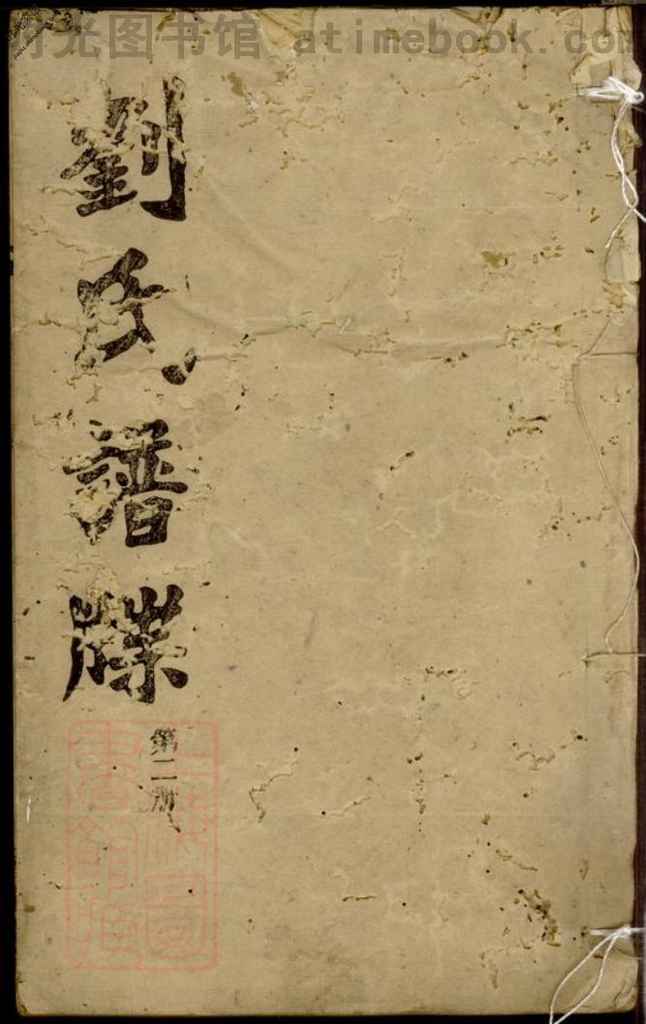 时光图书馆 atimebook.com
劉氏譜牒
第二册